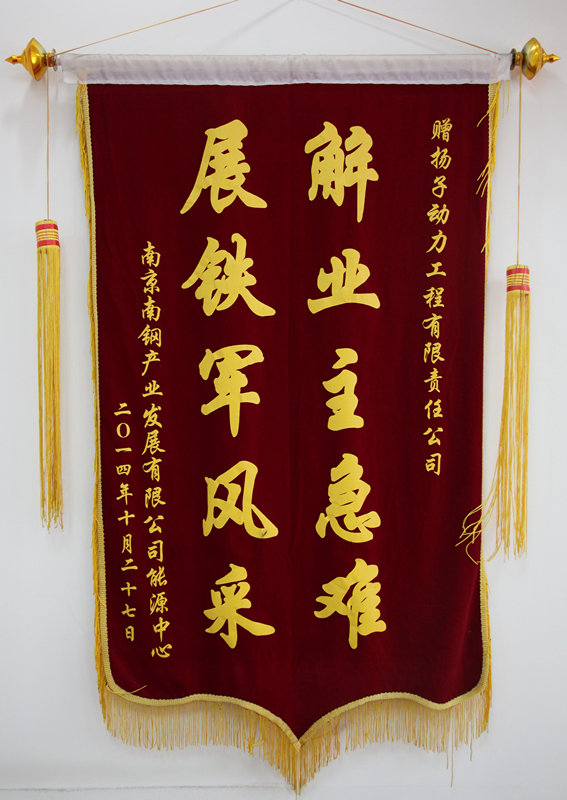 赠扬子动力工程有限责任公司
解业主急难
展铁军风采
南京南钢产业发展有限公司能源中心
二〇一四年十月二十七日